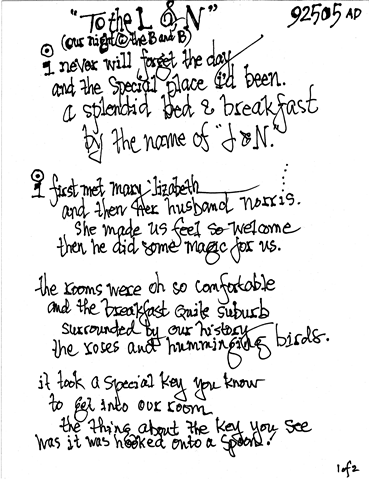 "To the L & N" 92505 AD
(our night @ the B and B)
I never will forget the day
and the special place i'd been.
a splendid bed & breakfast
by the name of "L & N."
I first met mary 'lizabeth
and then her husband norris.
she made us feel so welcome
then he did some magic for us.
the rooms were oh so comfortable
and the breakfast quite suburb
surrounded by our history
the roses and humminging birds.
it took a special key you know
to get into our room
the thing about the key you see
was it was hooked onto a spoon!
1 of 2